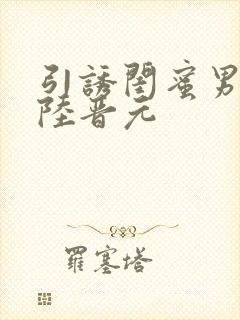 引誘閨蜜男
陸晋元
羅塞塔